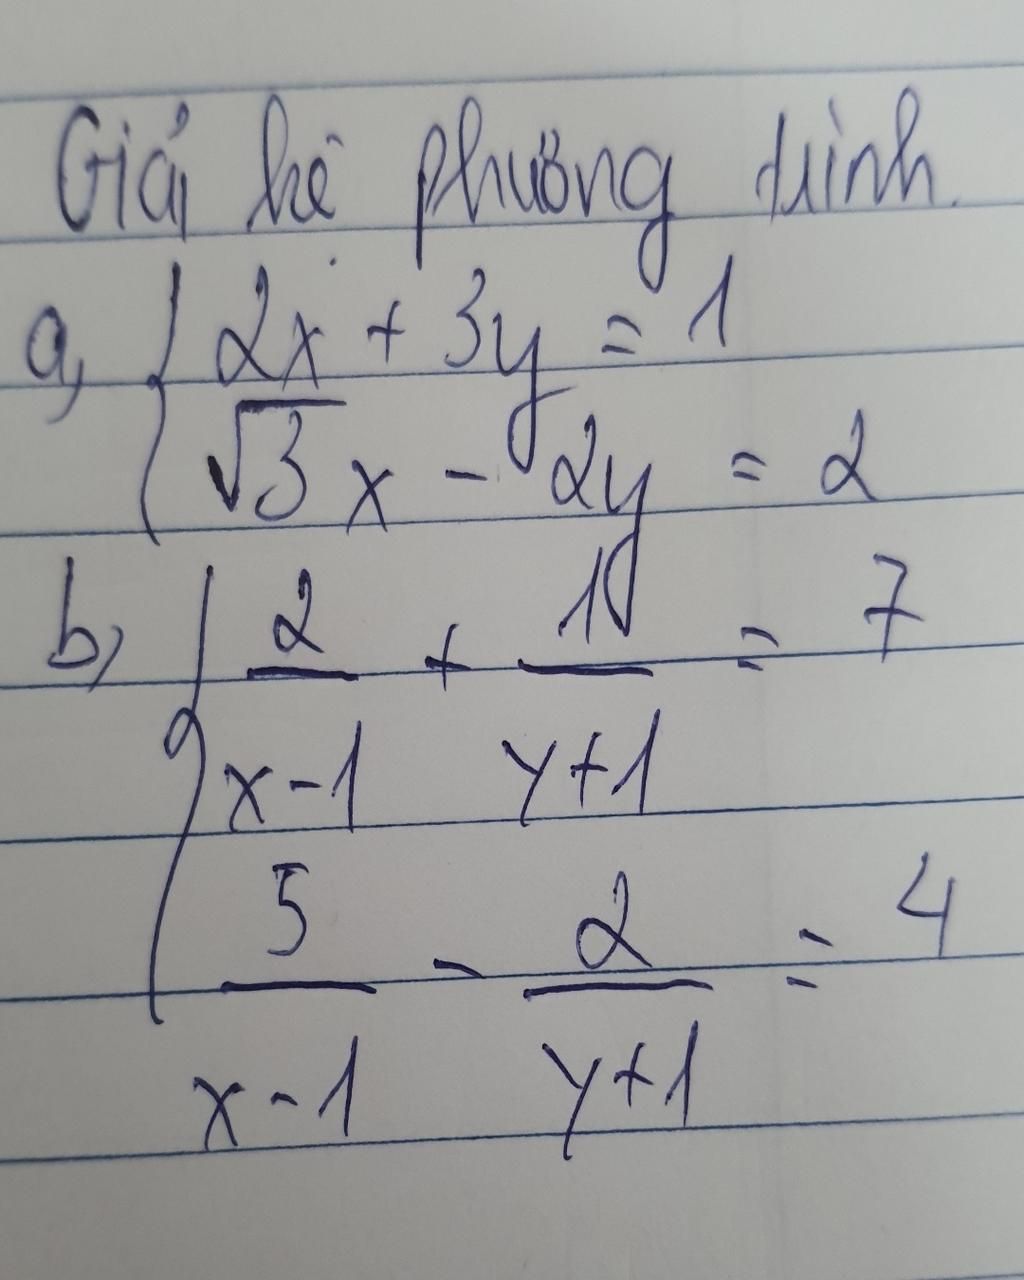 Giải hệ phương trình.
a, { 2x + 3y = 1
√3x - 2y = 2
b, { 2/(x-1) + 1/(y+1) = 7
5/(x-1) - 2/(y+1) = 4